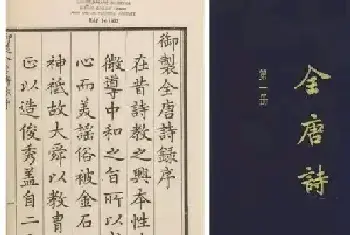 御製全唐詩錄序
在昔詩教之興本性
微導中和之旨所以
心而美謠俗被金石
神祇故大舜以教冑
正以造俊秀蓋自二
全唐詩
第一册